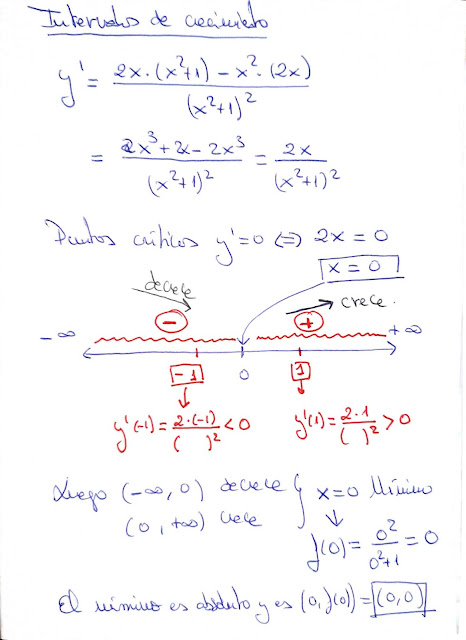 Intervalos de crecimiento
y' = (2x·(x²+1) − x²·(2x)) / (x²+1)²
= (2x³+2x−2x³) / (x²+1)² = 2x / (x²+1)²
Puntos críticos y'=0 ⇔ 2x = 0
x = 0
decrece
crece.
− +
-∞ +∞
-1 0 1
y'(-1) = 2·(-1) / ( )² < 0 y'(1) = 2·1 / ( )² > 0
Luego (-∞, 0) decrece } x=0 Mínimo
(0, +∞) crece ↓
f(0) = 0² / 0²+1 = 0
El mínimo es absoluto y es (0, f(0)) = (0,0)